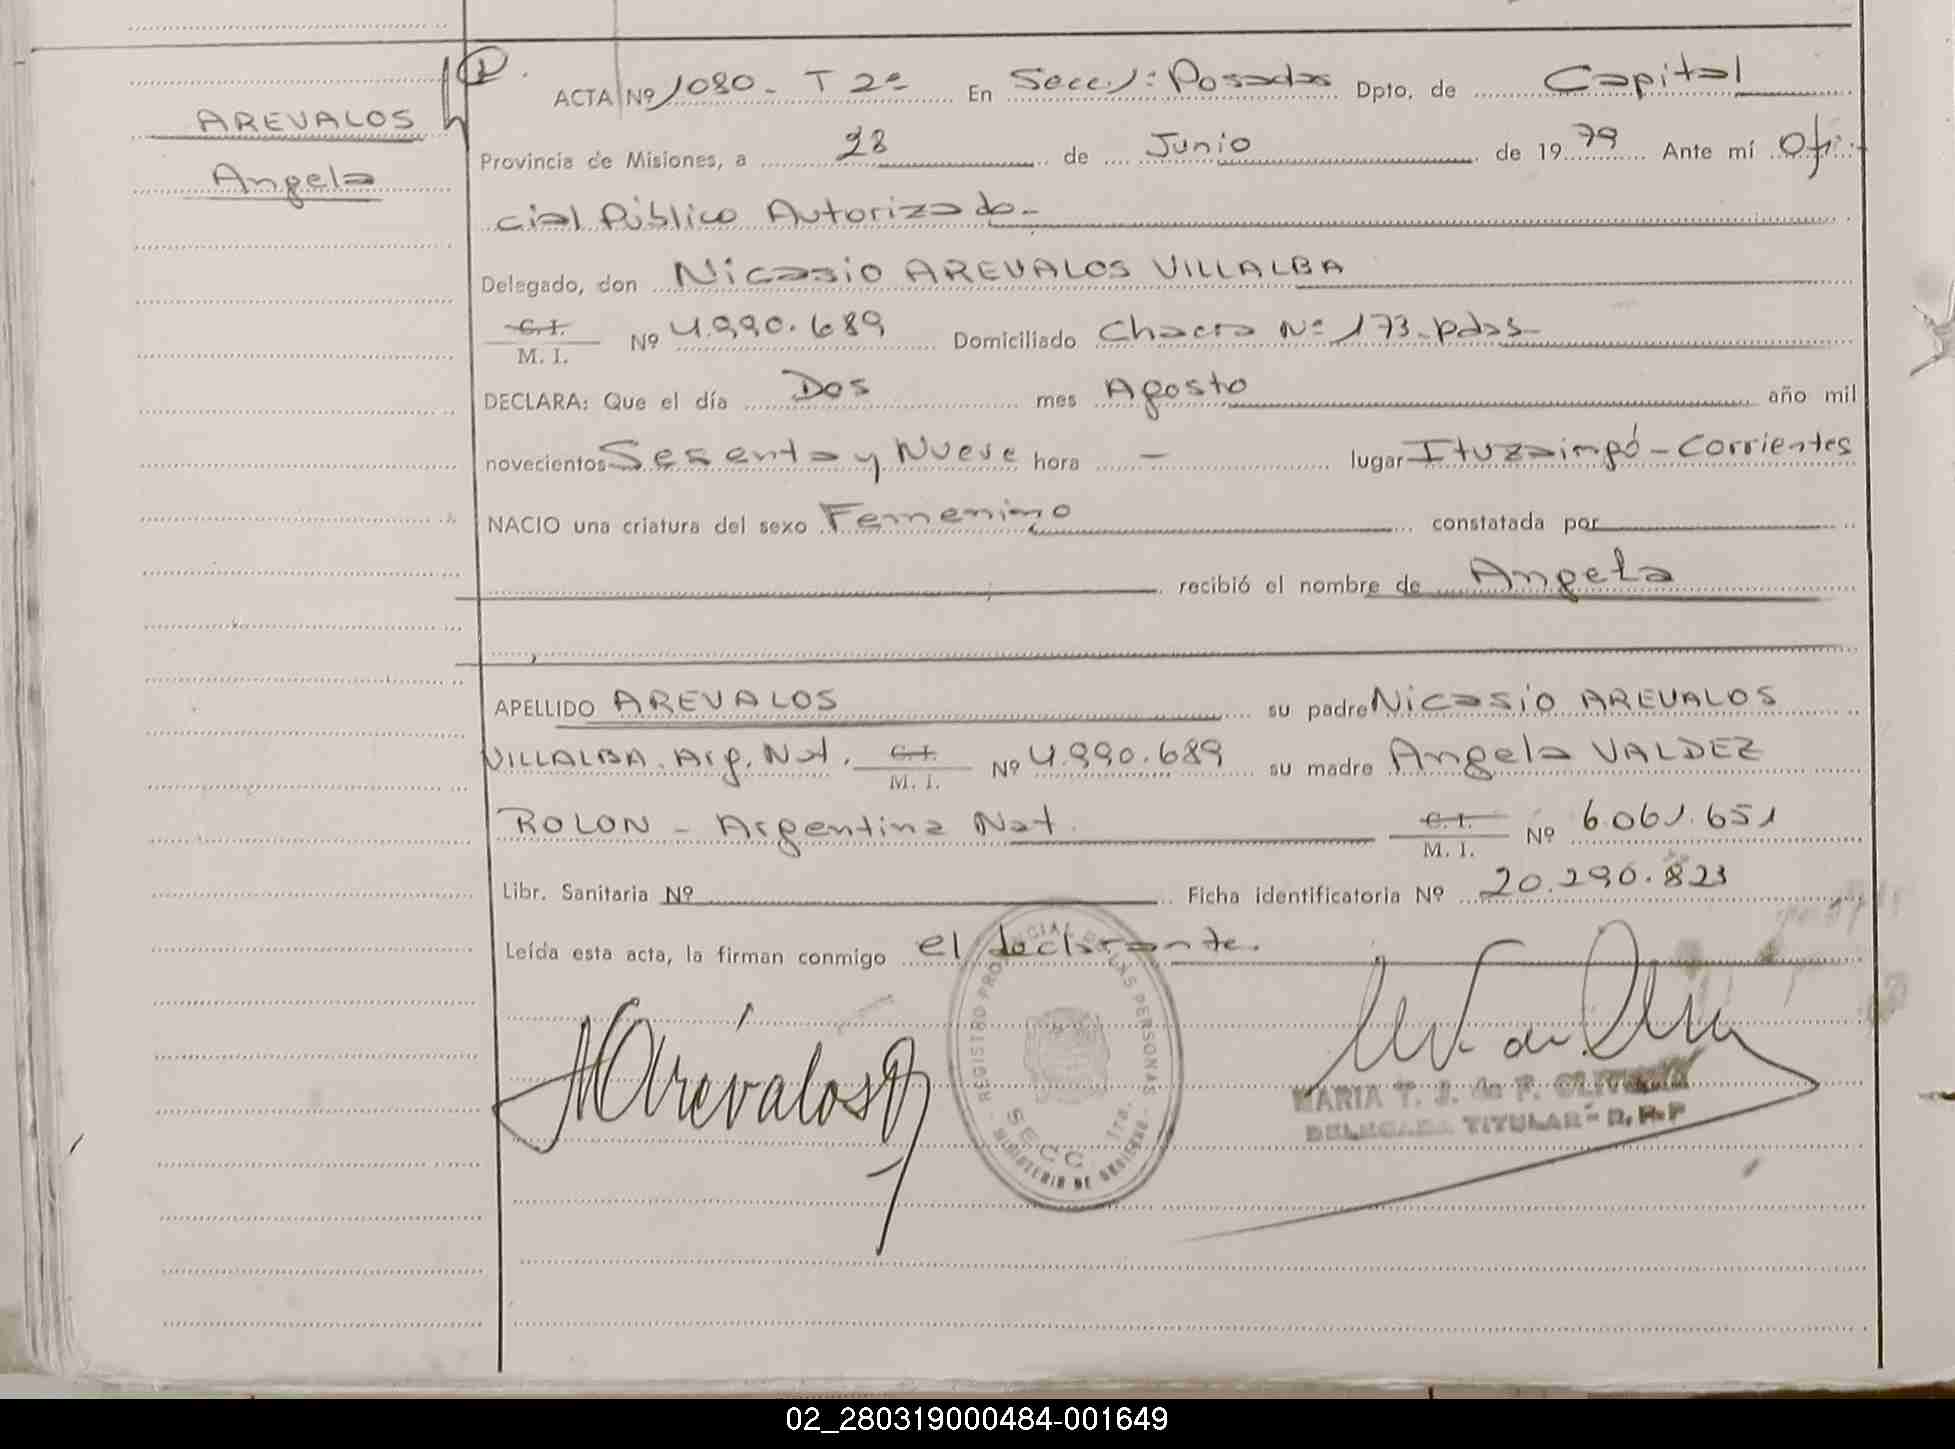 AREVALOS
Angela
ACTA Nº 1080 - T 2º En Secc. 1: Posadas Dpto. de Capital
Provincia de Misiones, a 28 de Junio de 1979 Ante mí Ofi-
cial Público Autorizado.-
Delegado, don Nicasio AREVALOS VILLALBA
C. I.
M. I. Nº 4.990.689 Domiciliado Chacra Nº 173-pdas-
DECLARA: Que el día Dos mes Agosto año mil
novecientos Sesenta y Nueve hora — lugar Ituzaingó - Corrientes
NACIO una criatura del sexo Femenino constatada por
recibió el nombre de Angela
APELLIDO AREVALOS su padre Nicasio AREVALOS
VILLALBA. Arg. Nat. C.I. M. I. Nº 4.990.689 su madre Angela VALDEZ
ROLON - Argentina Nat. C. I. M. I. Nº 6.061.651
Libr. Sanitaria Nº Ficha identificatoria Nº 20.290.823
Leída esta acta, la firman conmigo el declarante.
NArévalosV
REGISTRO PROVINCIAL DE LAS PERSONAS
SECC. 1ra.
MINISTERIO DE GOBIERNO
MARIA T. J. de F.
DELEGADA TITULAR - R. P. P
02_280319000484-001649